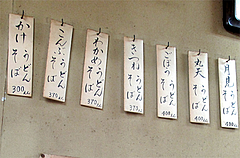 かけ うどん そば 300えん
こんぶ うどん そば 370えん
わかめ うどん そば 370えん
きつね うどん そば
ごぼう うどん そば 400えん
丸天 うどん そば 400えん
月見 うどん そば 400えん